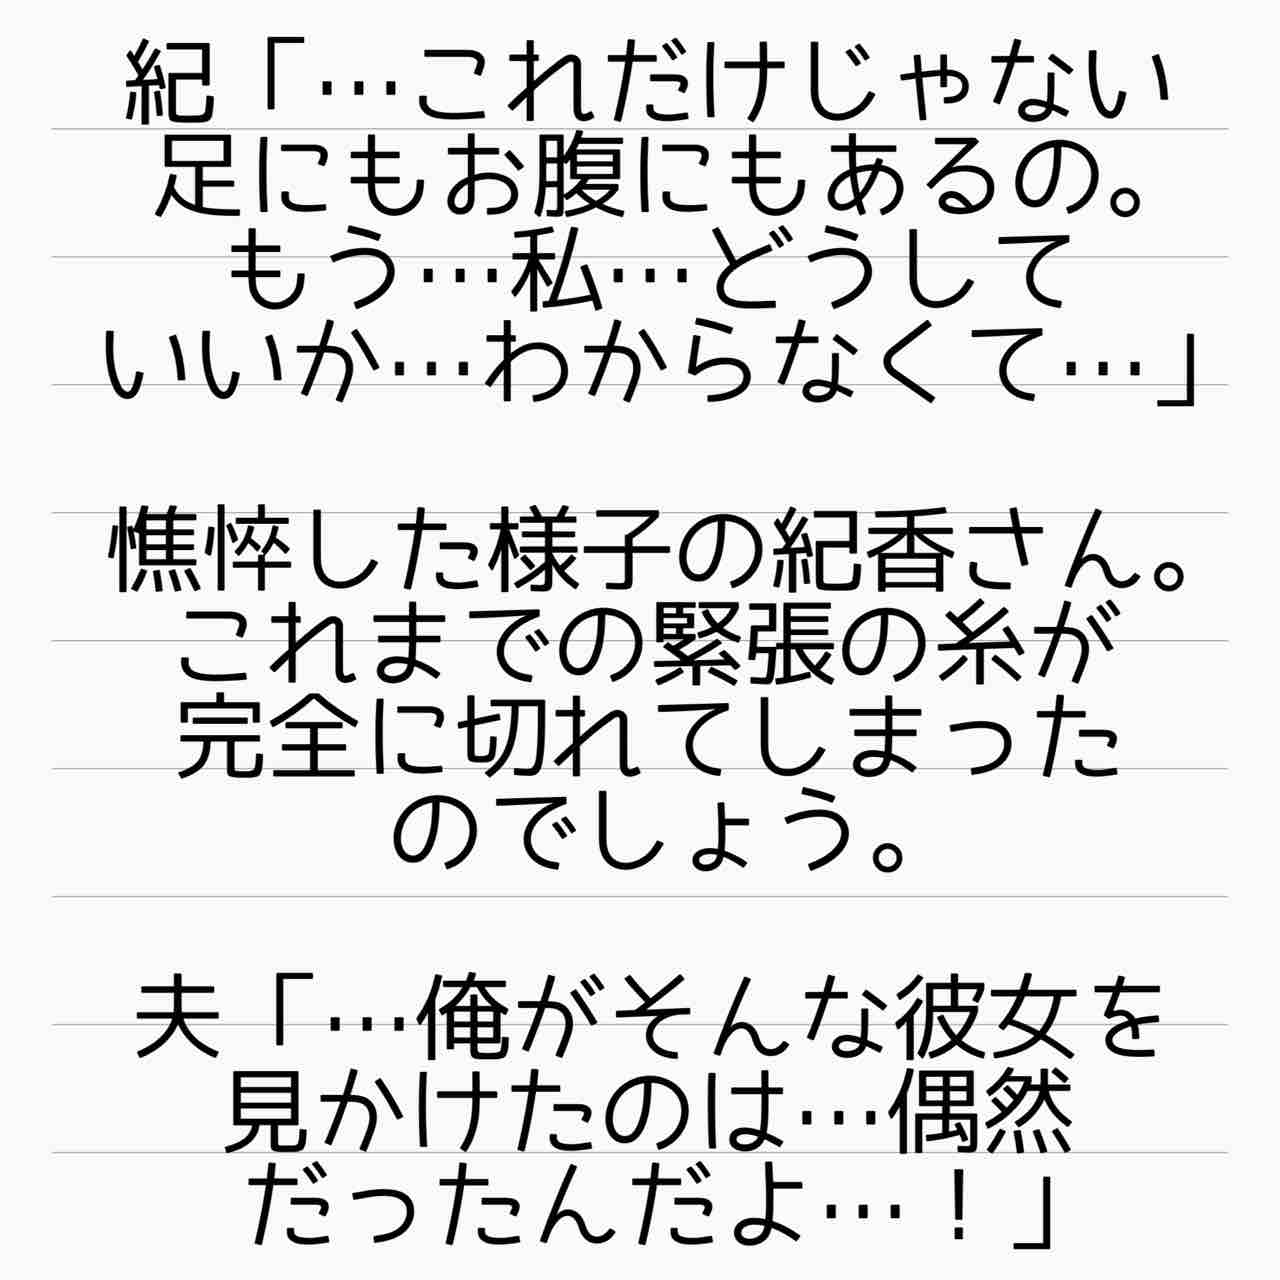 紀「…これだけじゃない
足にもお腹にもあるの。
もう…私…どうして
いいか…わからなくて…」
憔悴した様子の紀香さん。
これまでの緊張の糸が
完全に切れてしまった
のでしょう。
夫「…俺がそんな彼女を
見かけたのは…偶然
だったんだよ…！」